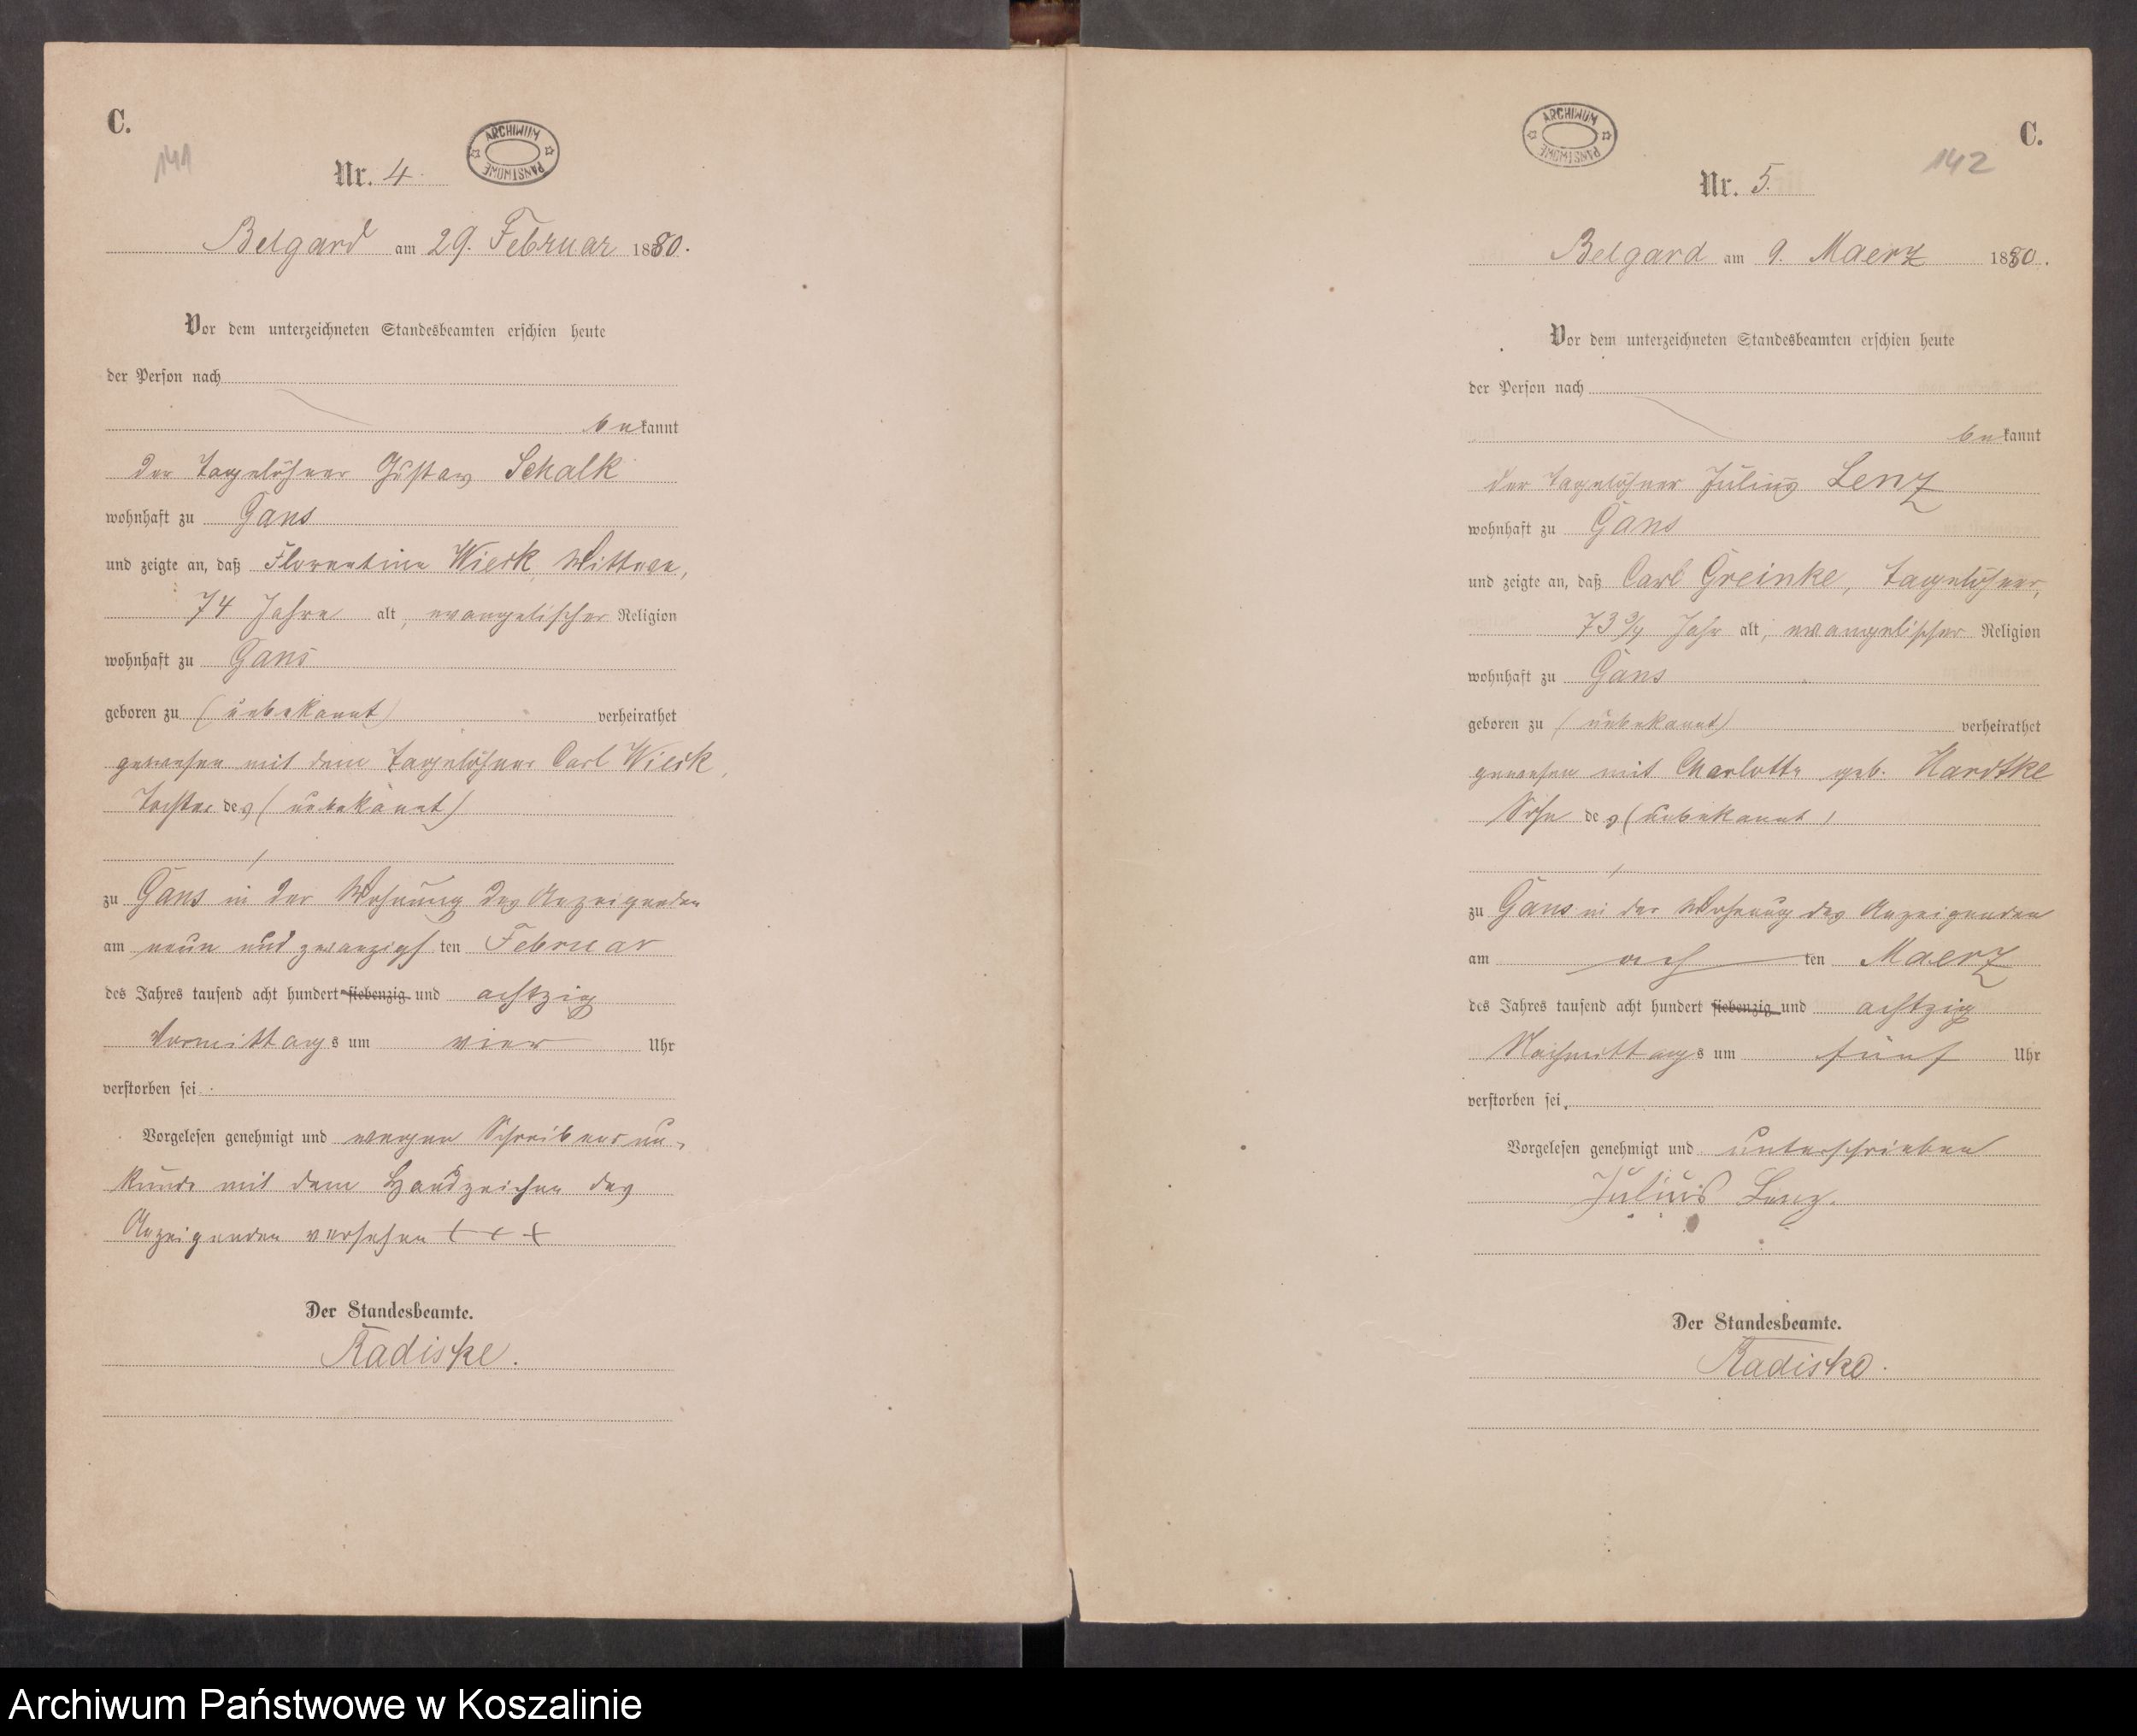 C.
141
ARCHIWUM PAŃSTWOWE
Nr. 4.
Belgard am 29. Februar 1880.
Vor dem unterzeichneten Standesbeamten erschien heute
der Person nach
bekannt
der Tagelöhner Gustav Schalk
wohnhaft zu Gans
und zeigte an, daß Florentine Wieck, Wittwe,
74 Jahre alt, evangelischer Religion
wohnhaft zu Gans
geboren zu (unbekannt) verheirathet
gewesen mit dem Tagelöhner Carl Wieck,
Tochter des (unbekannt)
zu Gans in der Wohnung des Anzeigenden
am neun und zwanzigsten Februar
des Jahres tausend acht hundert siebenzig und achtzig
Vormittags um vier Uhr
verstorben sei.
Vorgelesen genehmigt und wegen Schreibensun-
kunde mit dem Handzeichen des
Anzeigenden versehen + + +
Der Standesbeamte.
Radiske.
C.
142
ARCHIWUM PAŃSTWOWE
Nr. 5.
Belgard am 9. Maerz 1880.
Vor dem unterzeichneten Standesbeamten erschien heute
der Person nach
bekannt
der Tagelöhner Julius Lenz
wohnhaft zu Gans
und zeigte an, daß Carl Greinke, Tagelöhner,
73 3/4 Jahr alt, evangelischer Religion
wohnhaft zu Gans
geboren zu (unbekannt) verheirathet
gewesen mit Charlotte geb. Hardtke
Sohn des (unbekannt)
zu Gans in der Wohnung des Anzeigenden
am achten Maerz
des Jahres tausend acht hundert siebenzig und achtzig
Nachmittags um fünf Uhr
verstorben sei.
Vorgelesen genehmigt und unterschrieben
Julius Lenz.
Der Standesbeamte.
Radiske.
Archiwum Państwowe w Koszalinie